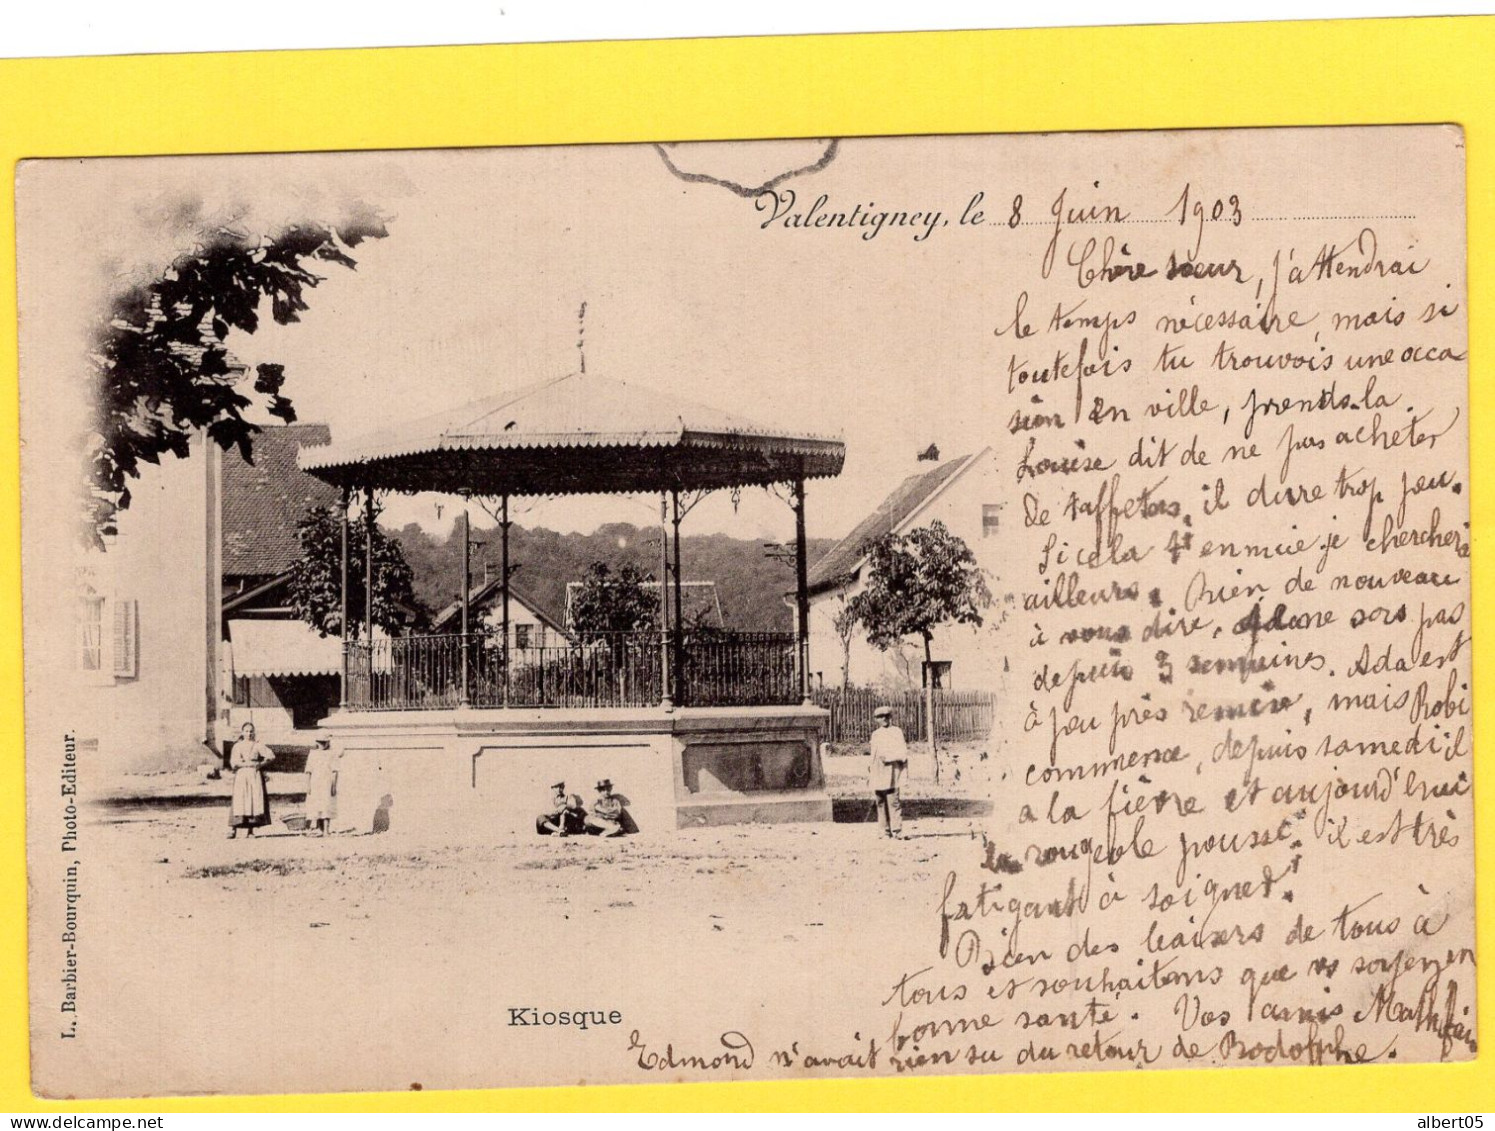 Valentigney, le 8 Juin 1903
Chère sœur, j'attendrai
le temps nécessaire, mais si
toutefois tu trouvois une occa
sion en ville, prends-la.
Louise dit de ne pas acheter
de taffetas, il dure trop peu.
Si cela t'ennuie je chercherai
ailleurs. Rien de nouveau
à vous dire, je ne sors pas
depuis 3 semaines. Ada est
à peu près remise, mais Robi
commence, depuis samedi il
a la fièvre et aujourd'hui
la rougeole pousse, il est très
fatigant à soigner.
Bien des baisers de tous à
tous et souhaitons que vs soyez en
bonne santé. Vos amis
Edmond n'avait rien su du retour de Rodolphe.
Kiosque
L. Barbier-Bourquin, Photo-Editeur.
albert05